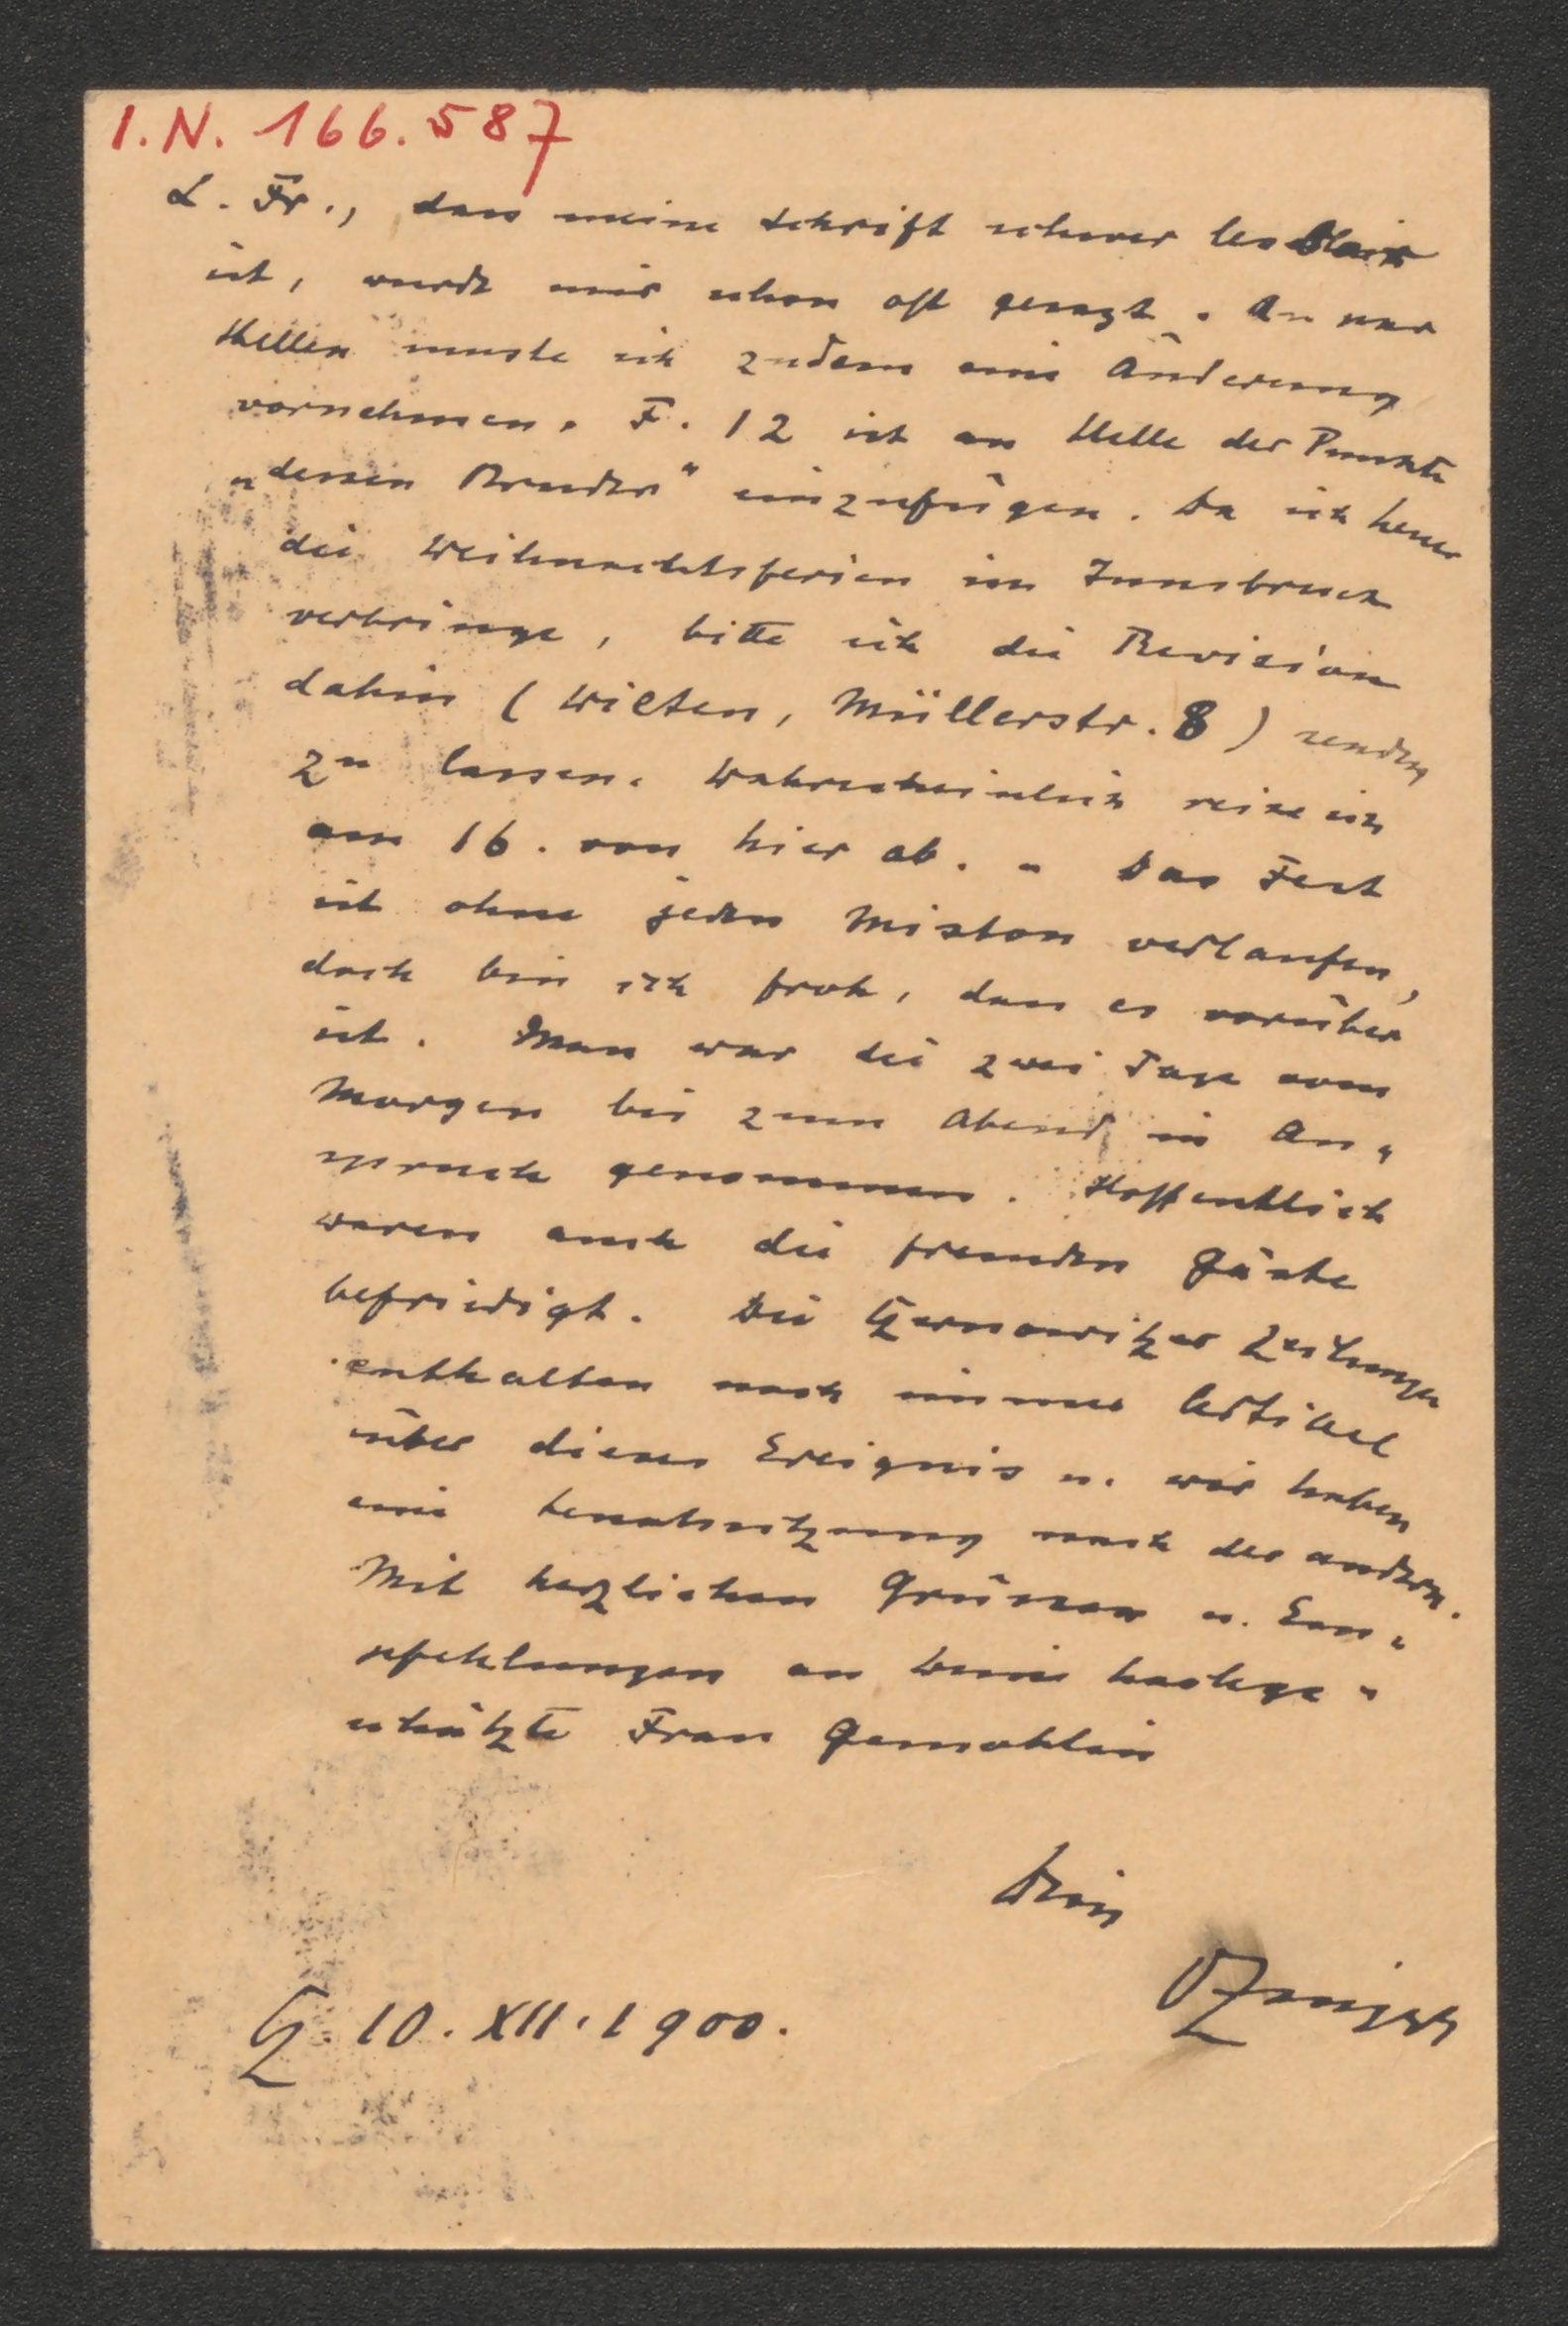 I.N. 166.587
L. Fr., dass meine Schrift schwer lesbar
ist, wurde mir schon oft gesagt. An paar
Stellen musste ich zudem eine Änderung
vornehmen. F. 12 ist an Stelle der Punkte
„dessen Bruder“ einzufügen. Da ich heuer
die Weihnachtsferien in Innsbruck
verbringe, bitte ich die Revision
dahin (Wilten, Müllerstr. 8) senden
zu lassen. Wahrscheinlich reise ich
am 16. von hier ab. - Das Fest
ist ohne jeden Miston verlaufen,
doch bin ich froh, dass es vorüber
ist. Man war die zwei Tage vom
Morgen bis zum Abend in An-
spruch genommen. Hoffentlich
waren auch die fremden Gäste
befriedigt. Die Czernowitzer Zeitungen
enthalten noch immer Artikel
über dieses Ereignis u. wir haben
eine Senatssitzung nach der andern.
Mit herzlichen Grüssen u. Em-
pfehlungen an Deine hochge-
schätzte Frau Gemahlin
Dein
Cz 10. XII. 1900.